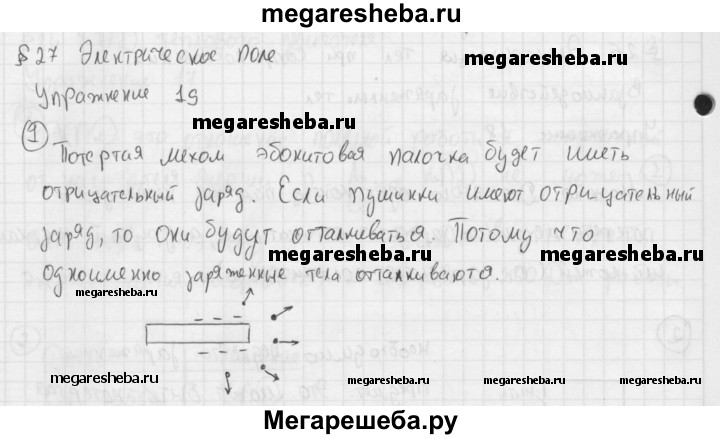 megaresheba.ru
§27 Электрическое поле
megaresheba.ru
Упражнение 19
megaresheba.ru
① Потертая мехом эбонитовая палочка будет иметь
отрицательный заряд. Если пушинки имеют отрицательный
заряд, то они будут отталкиваться. Потому что
одноименно заряженные тела отталкиваются.
megaresheba.ru
megaresheba.ru
megaresheba.ru
megaresheba.ru
megaresheba.ru
Мегарешеба.ру